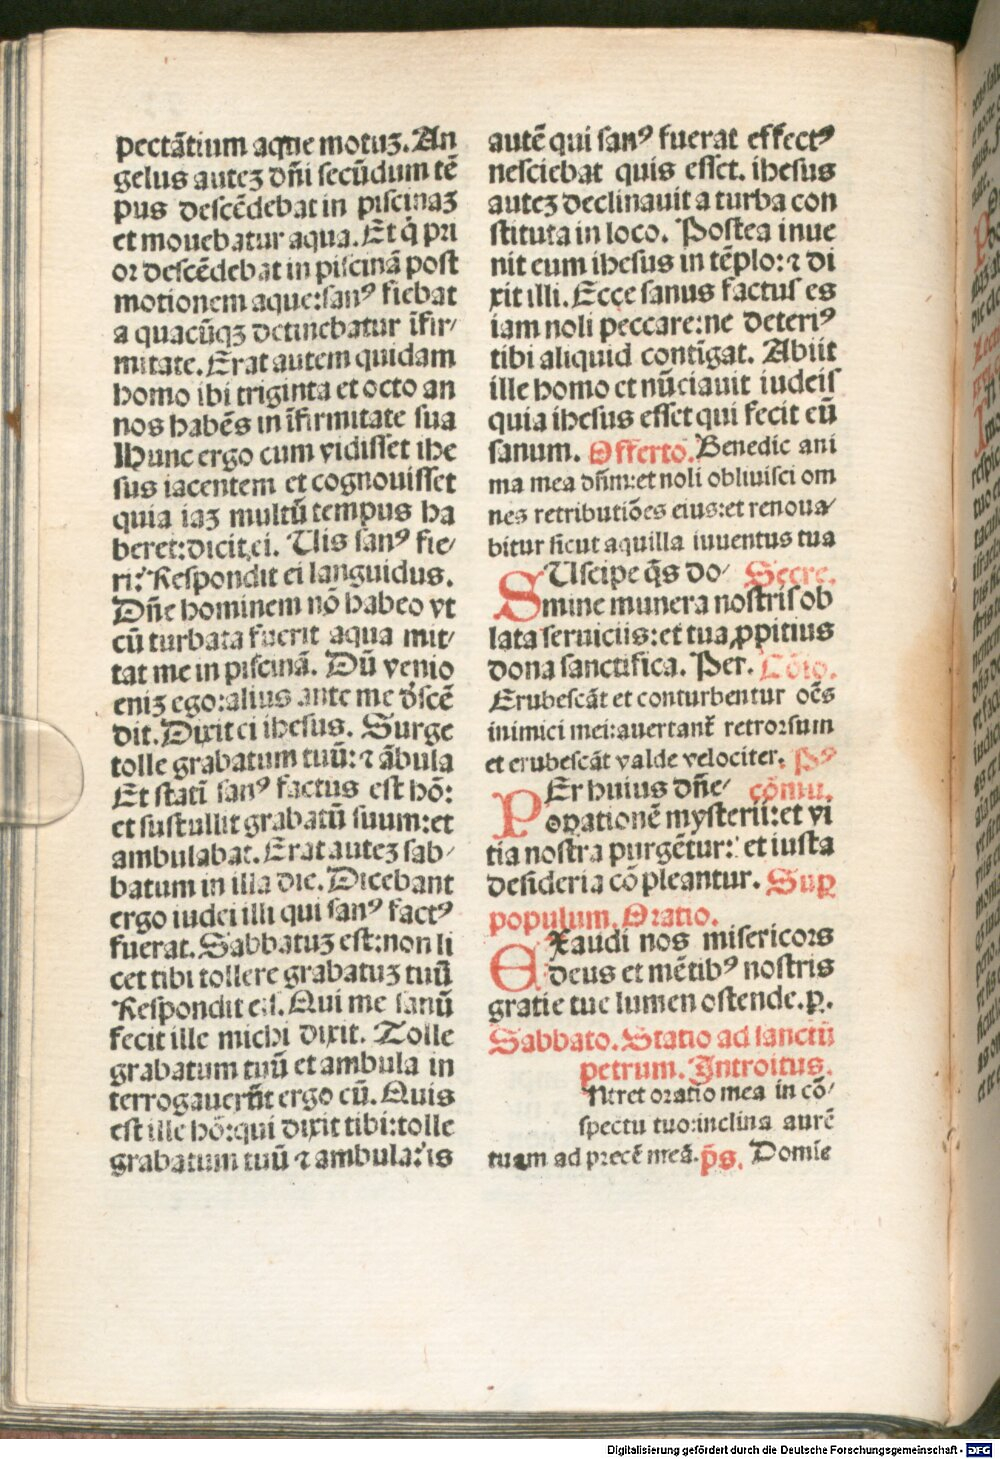 pectātium aque motuʒ. An
gelus auteʒ dn̄i secūdum tē
pus descēdebat in piscinaʒ
et mouebatur aqua. Et q̇ pri
or descēdebat in piscinā post
motionem aque: sanꝰ fiebat
a quacūqʒ detinebatur īfir⸗
mitate. Erat autem quidam
homo ibi triginta et octo an
nos habēs in īfirmitate sua
Hunc ergo cum vidisset ihe
sus iacentem et cognouisset
quia iaʒ multū tempus ha
beret: dicit ei. Uis sanꝰ fie⸗
ri? Respondit ei languidus.
Dn̄e hominem nō habeo vt
cū turbata fuerit aqua mit⸗
tat me in piscinā. Dū venio
eniʒ ego: alius ante me d̕scē
dit. Dixit ei ihesus. Surge
tolle grabatum tuū: ⁊ ābula
Et statī sanꝰ factus est hō:
et sustullit grabatū suum: et
ambulabat. Erat auteʒ sab⸗
batum in illa die. Dicebant
ergo iudei illi qui sanꝰ factꝰ
fuerat. Sabbatuʒ est: non li
cet tibi tollere grabatuʒ tuū
Respondit eis. Qui me sanū
fecit ille michi dixit. Tolle
grabatum tuū et ambula in
terrogauerūt ergo eū. Quis
est ille hō: qui dixit tibi: tolle
grabatum tuū ⁊ ambula? is
autē qui sanꝰ fuerat effectꝰ
nesciebat quis esset. ihesus
auteʒ declinauit a turba con
stituta in loco. Postea inue
nit eum ihesus in tēplo: ⁊ di
xit illi. Ecce sanus factus es
iam noli peccare: ne deteriꝰ
tibi aliquid contīgat. Abiit
ille homo et nūciauit iudeis
quia ihesus esset qui fecit eū
sanum. Offerto. Benedic ani
ma mea dn̄m: et noli obliuisci om
nes retributiōes eius: et renoua⸗
bitur sicut aquilla iuuentus tua
SUscipe q̄s do⸗ Secre.
mine munera nostris ob
lata seruiciis: et tua ꝓpitius
dona sanctifica. Per. Cōio.
Erubescāt et conturbentur oēs
inimici mei: auertant᷑ retrorsum
et erubescāt valde velociter. Pꝰ
PEr huius dn̄e⸗ cōmu.
operationē mysterii: et vi
tia nostra purgētur: et iusta
desideria cōpleantur. Suꝑ
populum. Oratio.
EXaudi nos misericors
deus et mētibꝰ nostris
gratie tue lumen ostende. ꝑ.
Sabbato. Statio ad sanctū
petrum. Introitus.
Ntret oratio mea in cō⸗
spectu tuo: inclina aurē
tuam ad precē meā. p̄s. Domīe
Digitalisierung gefördert durch die Deutsche Forschungsgemeinschaft - DFG